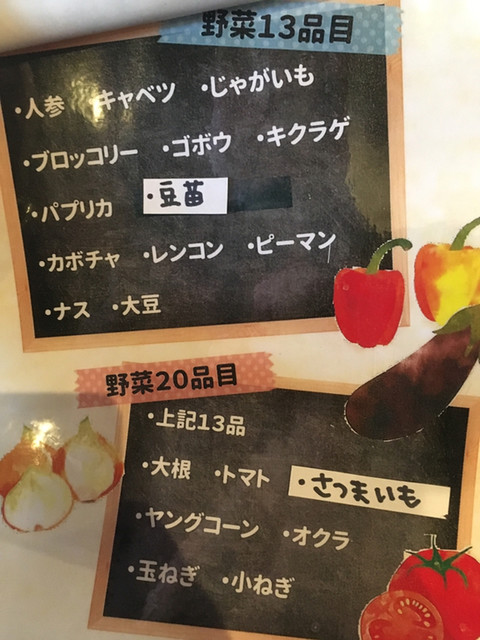 野菜13品目
・人参 キャベツ ・じゃがいも
・ブロッコリー ・ゴボウ ・キクラゲ
・パプリカ ・豆苗
・カボチャ ・レンコン ・ピーマン
・ナス ・大豆
野菜20品目
・上記13品
・大根 ・トマト ・さつまいも
・ヤングコーン ・オクラ
・玉ねぎ ・小ねぎ